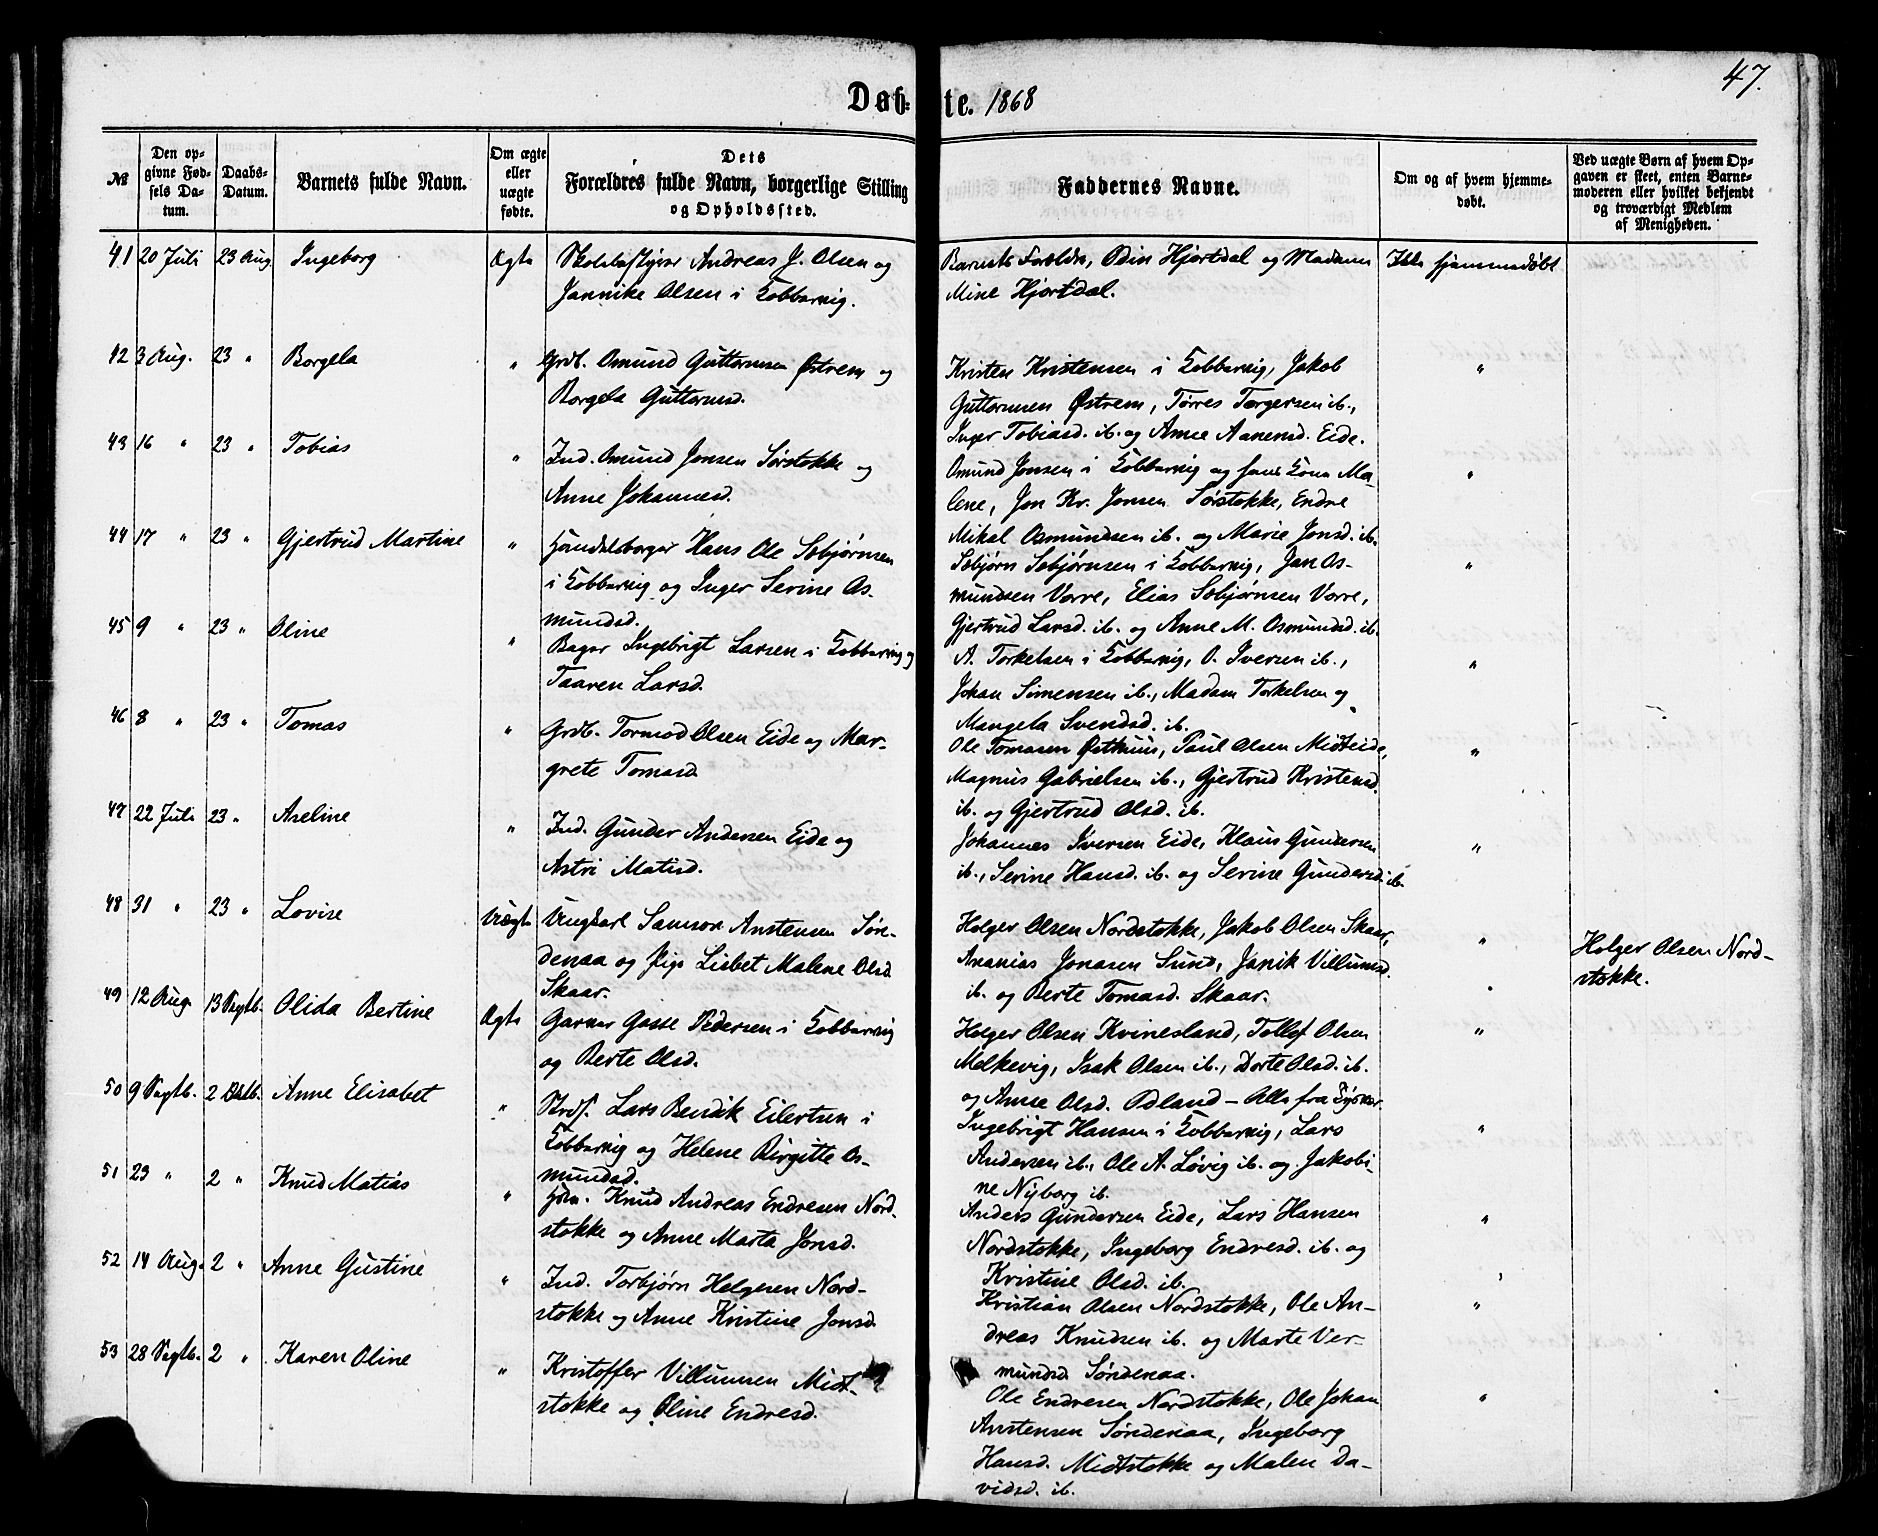 47.
Døb- te. 1868
№
Den opgivne Fødsels Datum.
Daabs-Datum.
Barnets fulde Navn.
Om ægte eller uægte fødte.
Dets Forældres fulde Navn, borgerlige Stilling og Opholdssted.
Faddernes Navne.
Om og af hvem hjemmedøbt.
Ved uægte Børn af hvem Opgaven er skeet, enten Barnemoderen eller hvilket bekjendt og troværdigt Medlem af Menigheden.
41 20 Juli 23 Aug Ingeborg Ægte
Andreas J. Olsen og
Jannike Olsen i Kobbervig.
Barnets Forældre, Odin Hjortdal og Madame
Mine Hjortdal.
Ikke hjemmedøbt
42 3 Aug. 23 " Borgela "
Grdb. Omund Guttormsen Østrem og
Borgela Guttormsd.
Kristen Kristensen i Kobbervig, Jakob
Guttormsen Østrem, Tørres Torgersen ib.,
Inger Tobiasd. ib. og Anne Aanensd. Eide.
"
43 16 " 23 " Tobias "
Ind. Omund Jonsen Sørstokke og
Anne Johannesd.
Omund Jonsen i Kobbervig og hans Kone Ma-
lene, Jon Kr. Jonsen Sørstokke, Endre
Mikal Osmundsen ib. og Marie Jonsd. ib.
"
44 17 " 23 " Gjertrud Martine "
Handelsborger Hans Ole Sebjørnsen
i Kobbervig og Inger Serine Os-
mundsd.
Sebjørn Sebjørnsen i Kobbervig, Jan Os-
mundsen Vorre, Elias Sebjørnsen Vorre,
Gjertrud Larsd. ib. og Anne M. Osmundsd. ib.
"
45 9 " 23 " Oline "
Bager Ingebrigt Larsen i Kobbervig og
Taaren Larsd.
A. Torkelsen i Kobbervig, O. Iversen ib.,
Johan Simensen ib., Madam Torkelsen og
Mangela Svendsd. ib.
"
46 8 " 23 " Tomas "
Grdb. Tormod Olsen Eide og Mar-
grete Tomasd.
Ole Tomasen Østhuus, Paul Olsen Midteide,
Magnus Gabrielsen ib., Gjertrud Kristensd.
ib. og Gjertrud Olsd. ib.
"
47 22 Juli 23 " Aseline "
Ind. Gunder Andersen Eide og
Astri Matisd.
Johannes Iversen Eide, Klaus Gundersen
ib., Serine Hansd. ib. og Serine Gundersd. ib.
"
48 31 " 23 " Lovise Uægte
Ungkarl Samson Anstensen Søn-
denaa og Pige Lisbet Malene Olsd.
Skaar.
Holger Olsen Nordstokke, Jakob Olsen Skaar,
Ananias Jonasen Sund, Janik Villumsd.
ib. og Berte Tomasd. Skaar.
"
Holger Olsen Nord-
stokke.
49 12 Aug. 13 Septb. Olida Bertine Ægte
Garver Gasse Pedersen i Kobbervig
og Berte Olsd.
Holger Olsen Kvinesland, Tollef Olsen
Melkevig, Isak Olsen ib., Dorte Olsd. ib.
og Anne Olsd. Odland – Alle fra Tysvær.
"
50 9 Septb. 2 Oktb. Anne Elisabet "
Strds. Lars Bendik Eilertsen i
Kobbervig og Helene Birgitte Os-
mundsd.
Ingebrigt Hansen i Kobbervig, Lars
Andersen ib., Ole A. Løvig ib. og Jakobi-
ne Nyborg ib.
"
51 23 " 2 " Knud Matias "
Knud Andreas Endresen Nord-
stokke og Anne Marta Jonsd.
Anders Gundersen Eide, Lars Hansen
Nordstokke, Ingeborg Endresd. ib. og
Kristine Olsd. ib.
"
52 14 Aug. 2 " Anne Gustine "
Ind. Torbjørn Helgesen Nord-
stokke og Anne Kristine Jonsd.
Kristian Olsen Nordstokke, Ole An-
dreas Knudsen ib. og Marte Ver-
mundsd Søndenaa.
"
53 28 Septb. 2 " Karen Oline "
Kristoffer Villumsen Midt-
stokke og Oline Endresd.
Ole Endresen Nordstokke, Ole Johan
Anstensen Søndenaa, Ingeborg
Hansd. Midtstokke og Malen Da-
vidsd. ib.
"